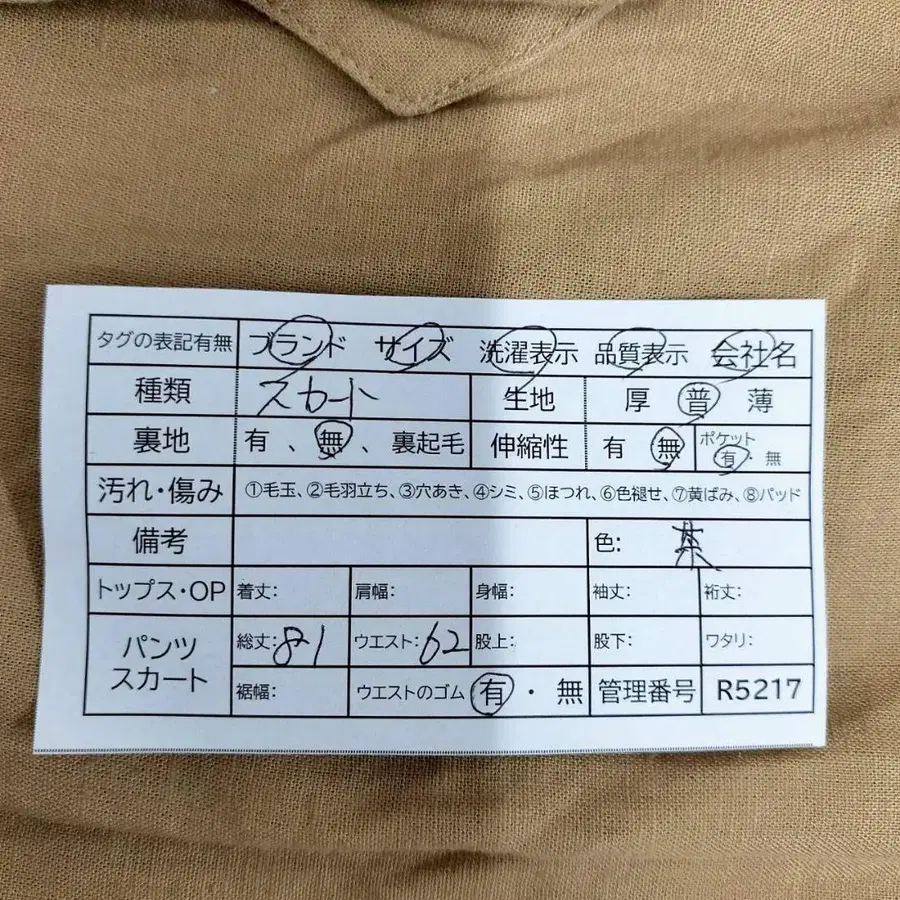 タグの表記有無 ブランド サイズ 洗濯表示 品質表示 会社名
種類 スカート 生地 厚 普 薄
裏地 有 、無、裏起毛 伸縮性 有 無 ポケット 有・無
汚れ・傷み ①毛玉、②毛羽立ち、③穴あき、④シミ、⑤ほつれ、⑥色褪せ、⑦黄ばみ、⑧パッド
備考 色: 茶
トップス・OP 着丈: 肩幅: 身幅: 袖丈: 裄丈:
パンツ スカート 総丈:81 ウエスト:62 股上: 股下: ワタリ:
裾幅: ウエストのゴム 有・無 管理番号 R5217